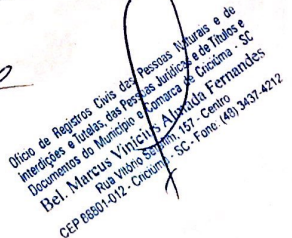 Ofício de Registros Civis das Pessoas Naturais e de
Interdições e Tutelas, das Pessoas Jurídicas e de Títulos e
Documentos do Município e Comarca de Criciúma - SC
Bel. Marcus Vinícius Almada Fernandes
Rua Vitório Serafim, 157 - Centro
CEP 88801-012 - Criciúma - SC - Fone: (48) 3437-4212